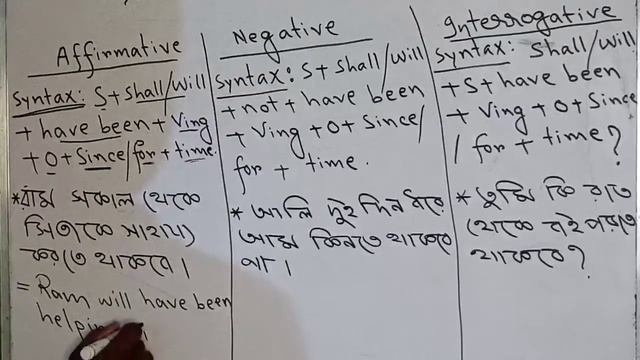 Affirmative
Syntax: S+ Shall/Will
+ have been + Ving
+ O + Since/for + time.
*রাম সকাল থেকে
মিতাকে সাহায্য
করতে থাকবে।
= Ram will have been
Negative
Syntax: S+ Shall/Will
+ not + have been
+ Ving + O + Since/
for + time.
* আলি দুই দিন ধরে
আম কিনতে থাকবে
না।
Interrogative
Syntax: Shall/Will
+ S + have been
+ Ving + O + Since
/ for + time?
* তুমি কি রাত
থেকে বই পড়তে
থাকবে?